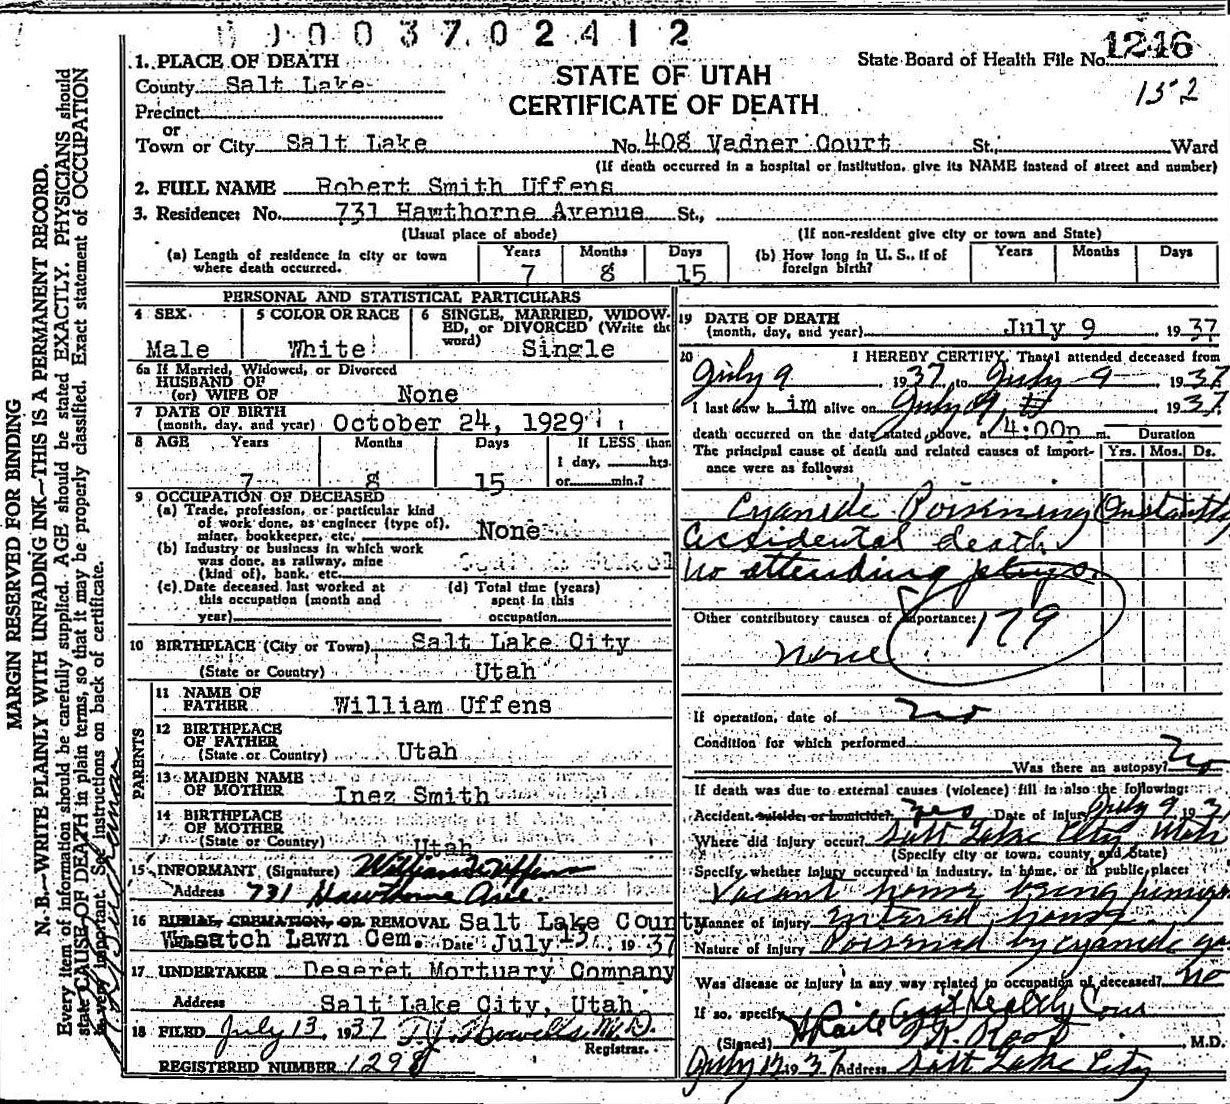 0003702412
1. PLACE OF DEATH
County Salt Lake
STATE OF UTAH
CERTIFICATE OF DEATH
State Board of Health File No. 1246
152
Precinct
or
Town or City Salt Lake No. 408 Vadner Court St., Ward
(If death occurred in a hospital or institution, give its NAME instead of street and number)
2. FULL NAME Robert Smith Uffens
3. Residence: No. 731 Hawthorne Avenue St.,
(Usual place of abode) (If non-resident give city or town and State)
(a) Length of residence in city or town where death occurred. Years 7 Months 8 Days 15
(b) How long in U. S., if of foreign birth? Years Months Days
PERSONAL AND STATISTICAL PARTICULARS
4 SEX Male
5 COLOR OR RACE White
6 SINGLE, MARRIED, WIDOWED, or DIVORCED (Write the word) Single
6a If Married, Widowed, or Divorced
HUSBAND OF
(or) WIFE OF None
7 DATE OF BIRTH
(month, day, and year) October 24, 1929
8 AGE Years 7 Months 8 Days 15
If LESS than
1 day, hrs.
or min.?
9 OCCUPATION OF DECEASED
(a) Trade, profession, or particular kind
of work done, as engineer (type of),
miner, bookkeeper, etc. None
(b) Industry or business in which work
was done, as railway, mine
(kind of), bank, etc.
(c) Date deceased last worked at
this occupation (month and
year)
(d) Total time (years)
spent in this
occupation
10 BIRTHPLACE (City or Town) Salt Lake City
(State or Country) Utah
PARENTS
11 NAME OF
FATHER William Uffens
12 BIRTHPLACE
OF FATHER
(State or Country) Utah
13 MAIDEN NAME
OF MOTHER Inez Smith
14 BIRTHPLACE
OF MOTHER
(State or Country) Utah
15 INFORMANT (Signature) William Uffens
Address 731 Hawthorne Ave.
16 BURIAL, CREMATION, OR REMOVAL Salt Lake County
Wasatch Lawn Cem. Date July 13, 1937
17 UNDERTAKER Deseret Mortuary Company
Address Salt Lake City, Utah
18 FILED July 13, 1937 T.J. Howells M.D.
Registrar.
REGISTERED NUMBER 1298
19 DATE OF DEATH
(month, day, and year) July 9 1937
20 I HEREBY CERTIFY, That I attended deceased from
July 9, 1937, to July 9 1937.
I last saw him alive on July 9, 1937.
death occurred on the date stated above, at 4:00p m.
Duration
The principal cause of death and related causes of importance were as follows:
Yrs. Mos. Ds.
Cyanide Poisoning
Accidental death
No attending phys.
Other contributory causes of importance:
179
None
If operation, date of no
Condition for which performed
Was there an autopsy? No
If death was due to external causes (violence) fill in also the following:
Accident, suicide, or homicide? Yes Date of injury July 9 193
Where did injury occur? Salt Lake City Utah
(Specify city or town, county, and State)
Specify whether injury occurred in industry, in home, or in public place:
Vacant home being
Manner of injury Entered house
Nature of injury Poisoned by cyanide ga
Was disease or injury in any way related to occupation of deceased? No
If so, specify
(Signed) M.D.
July 12 1937 Address Salt Lake City
MARGIN RESERVED FOR BINDING
N. B.—WRITE PLAINLY WITH UNFADING INK—THIS IS A PERMANENT RECORD.
Every item of information should be carefully supplied. AGE should be stated EXACTLY. PHYSICIANS should
state CAUSE OF DEATH in plain terms, so that it may be properly classified. Exact statement of OCCUPATION
is very important. See instructions on back of certificate.